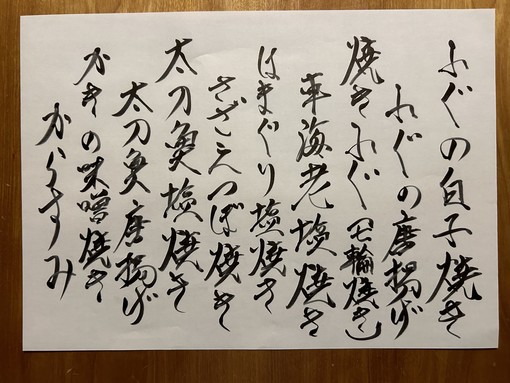 ふぐの白子焼き
ふぐの唐揚げ
焼きふぐ(七輪焼き)
車海老塩焼き
はまぐり塩焼き
さざえつぼ焼き
太刀魚塩焼き
太刀魚唐揚げ
かきの味噌焼き
からすみ